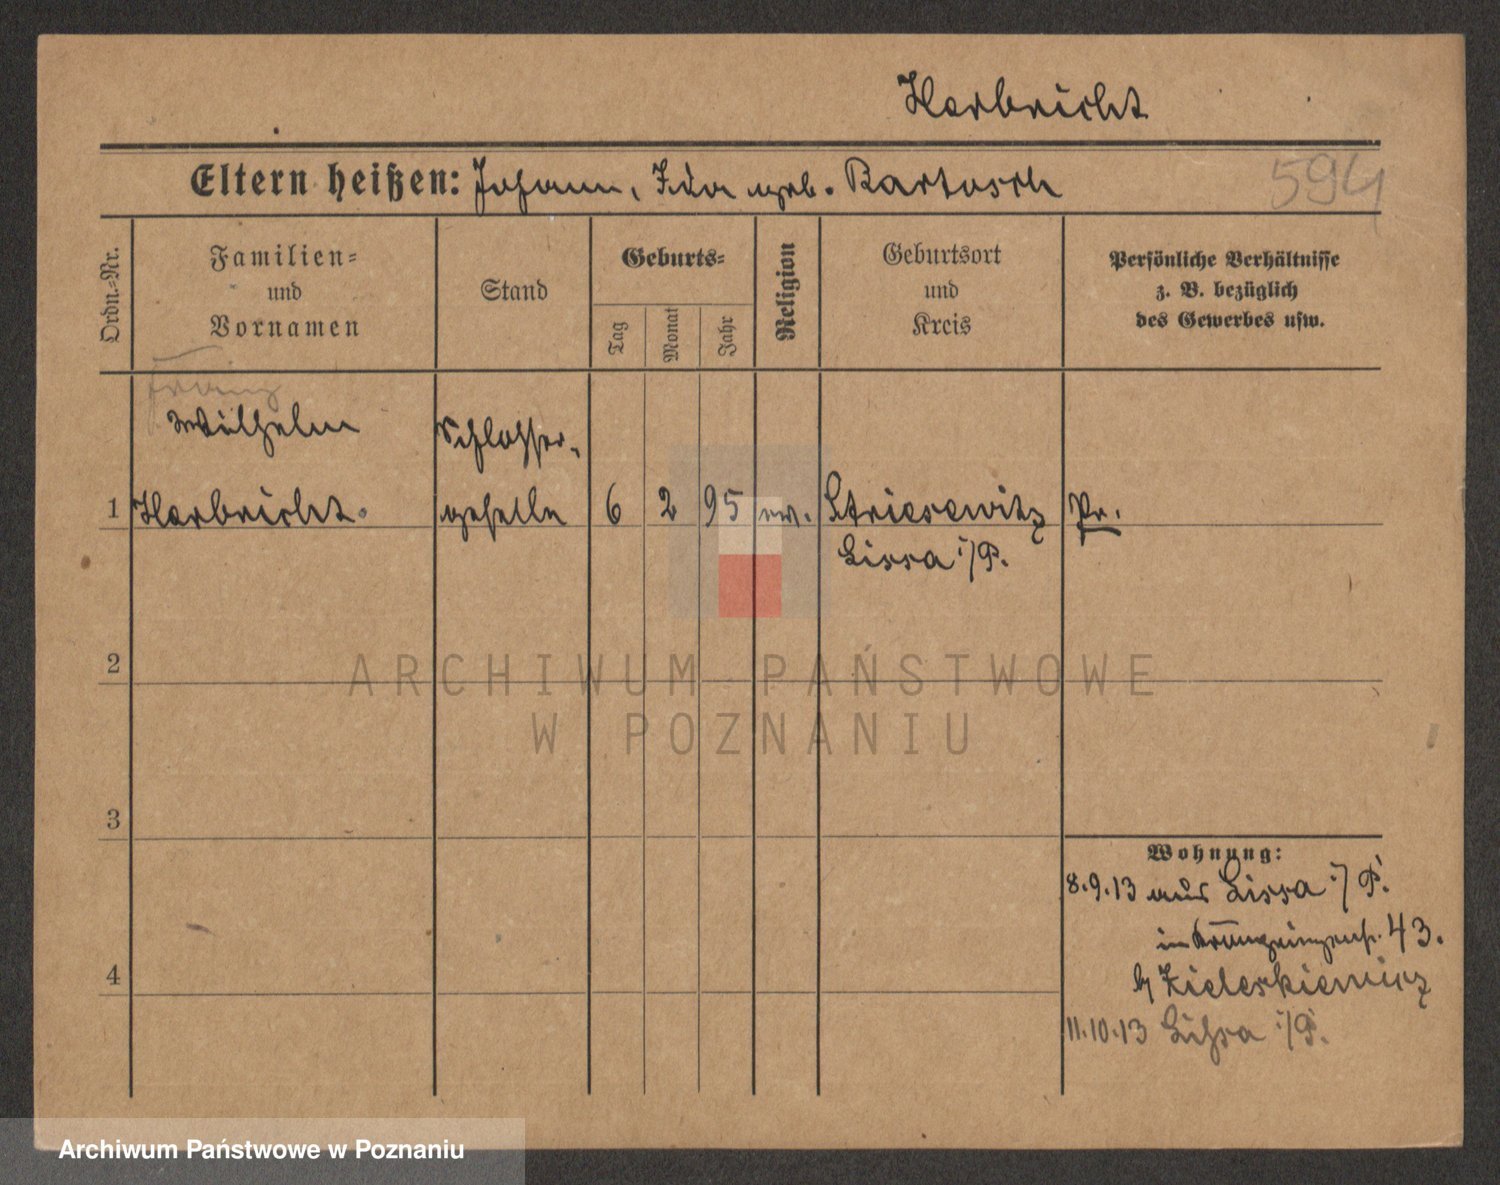 Harbricht
Eltern heißen: Johann, Eva geb. Bartosch
594
Ordn.-Nr.
Familien-
und
Vornamen
Stand
Geburts-
Tag
Monat
Jahr
Religion
Geburtsort
und
Kreis
Persönliche Verhältnisse
z. B. bezüglich
des Gewerbes usw.
Franz
Wilhelm
Schlosser-
1 Harbricht. geselle 6 2 95 ev. Striesewitz Pr.
Lissa i/P.
2
3
4
Wohnung:
8.9.13 aus Lissa i/P.
in 43.
b/
11.10.13 Lissa i/P.
ARCHIWUM PAŃSTWOWE
W POZNANIU
Archiwum Państwowe w Poznaniu